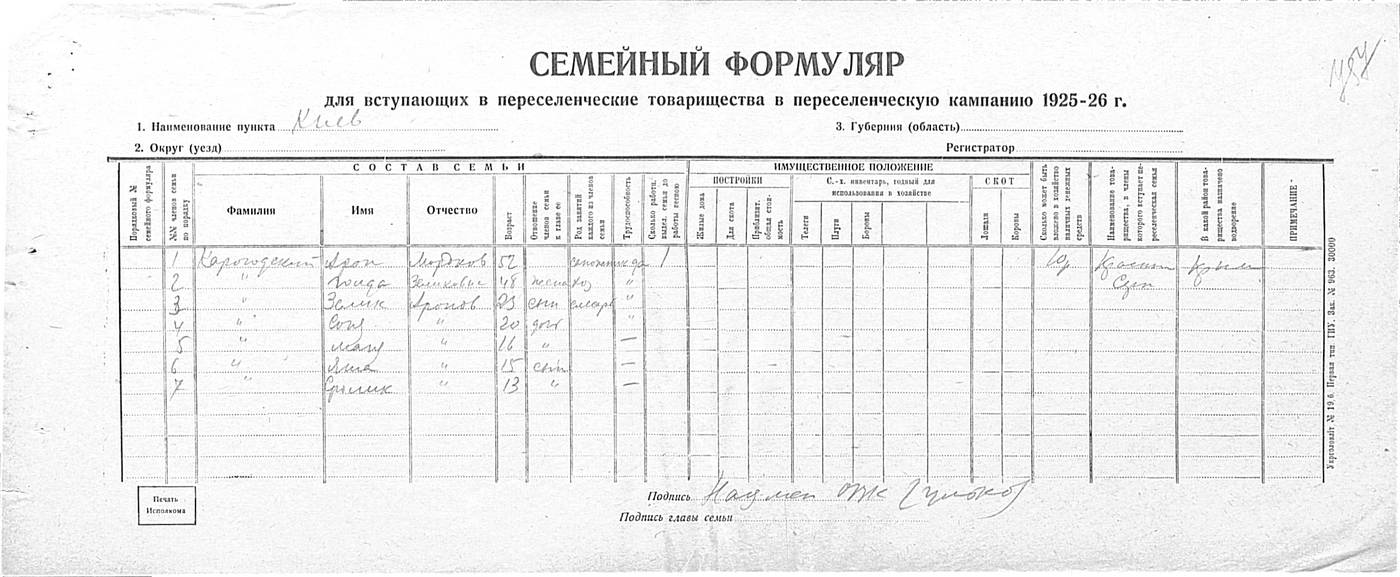 СЕМЕЙНЫЙ ФОРМУЛЯР
для вступающих в переселенческие товарищества в переселенческую кампанию 1925-26 г.
1. Наименование пункта Киев
3. Губерния (область)
2. Округ (уезд)
Регистратор
Порядковый № семейного формуляра
№№ членов семьи по порядку
СОСТАВ СЕМЬИ
Фамилия
Имя
Отчество
Возраст
Отношение членов семьи к главе ее
Род занятий каждого из членов семьи
Трудоспособность
Сколько работа. выдел. семья до работы весною
ИМУЩЕСТВЕННОЕ ПОЛОЖЕНИЕ
ПОСТРОЙКИ
Жилые дома
Для скота
Приблизит. общая стоимость
С.-х. инвентарь, годный для использования в хозяйстве
Телеги
Плуги
Бороны
СКОТ
Лошади
Коровы
Сколько может быть вложено в хозяйство наличных денежных средств
Наименование товарищества, в члены которого вступает переселенческая семья
В какой район товарищества назначено водворение
ПРИМЕЧАНИЕ
1 Карогодский Арон 52 сапожник да 1 Крым
2 " Зеликович 48 жена "
3 " Зелик Аронов 23 сын слесарь "
4 " Соня " 20 доч "
5 " Маня " 16 " —
6 " Яша " 15 сын —
7 " Сролик " 13 " —
Печать Исполкома
Подпись
Подпись главы семьи
Укрголовліт № 19.6. Первая тип. ГИУ. Зак. № 963. 30000